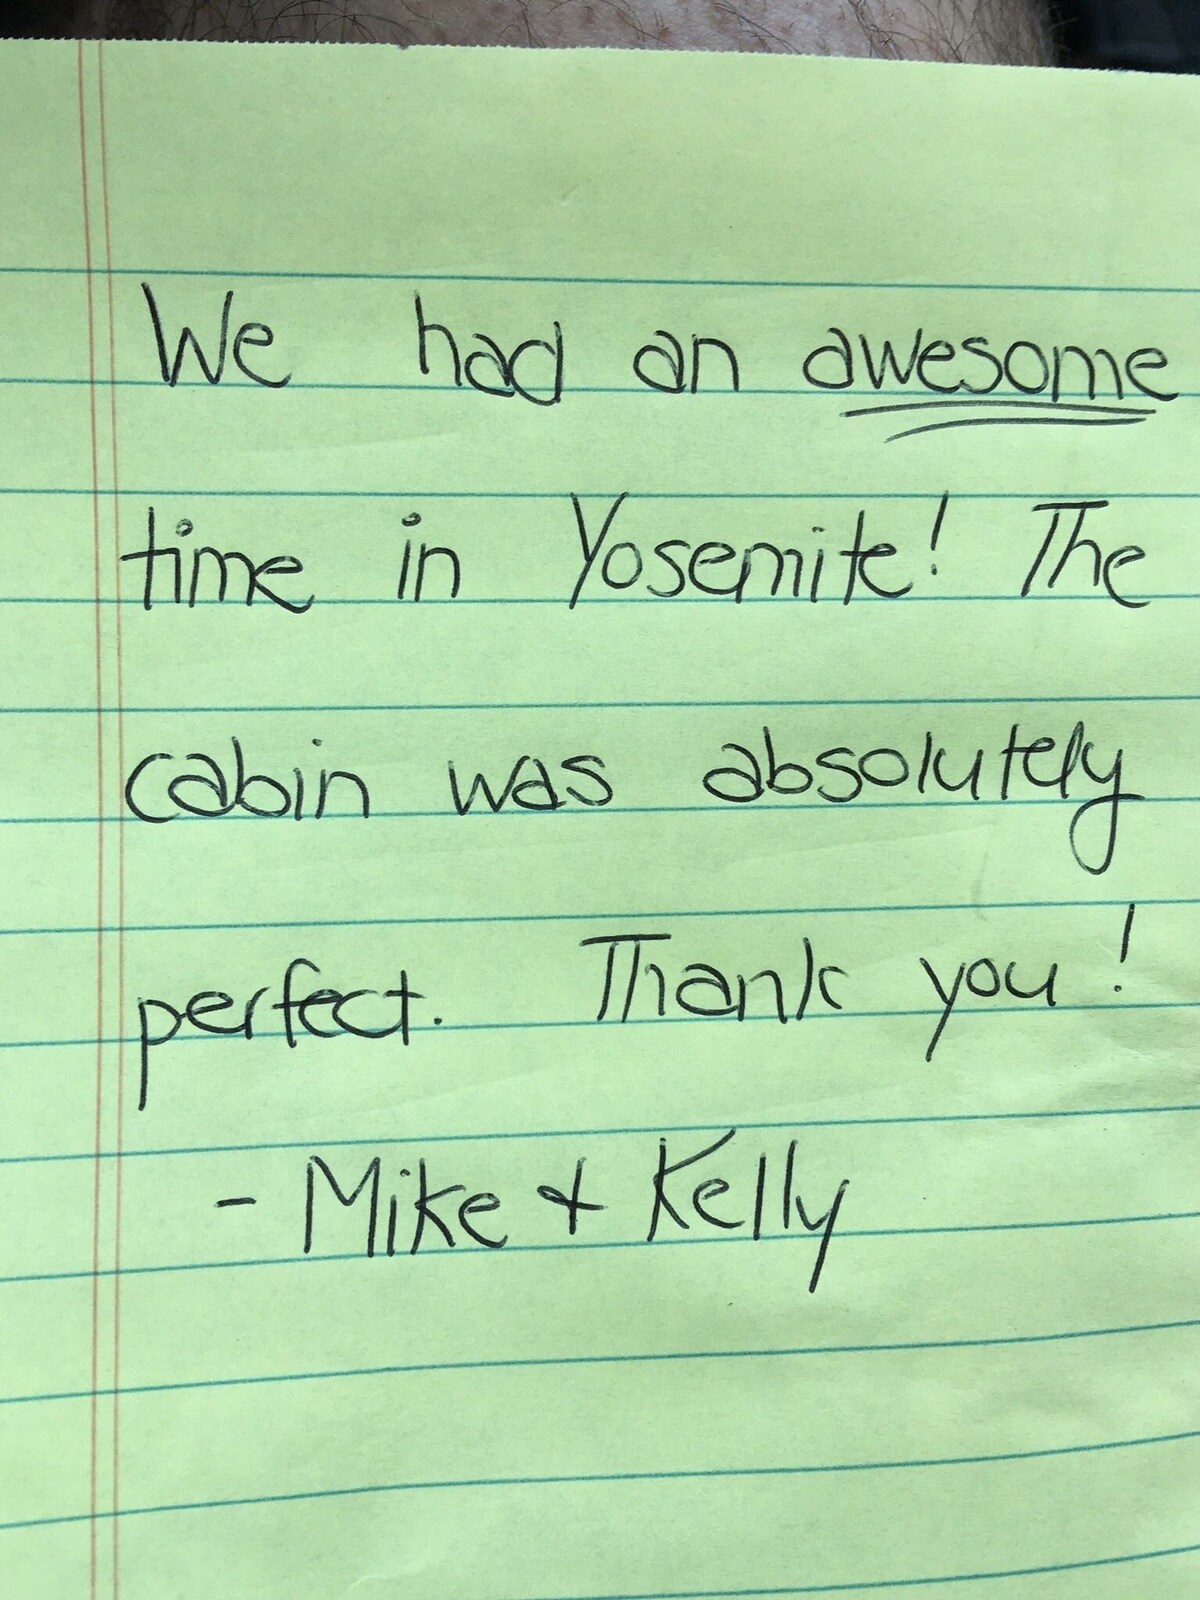 We had an awesome
time in Yosemite! The
cabin was absolutely
perfect. Thank you!
- Mike & Kelly